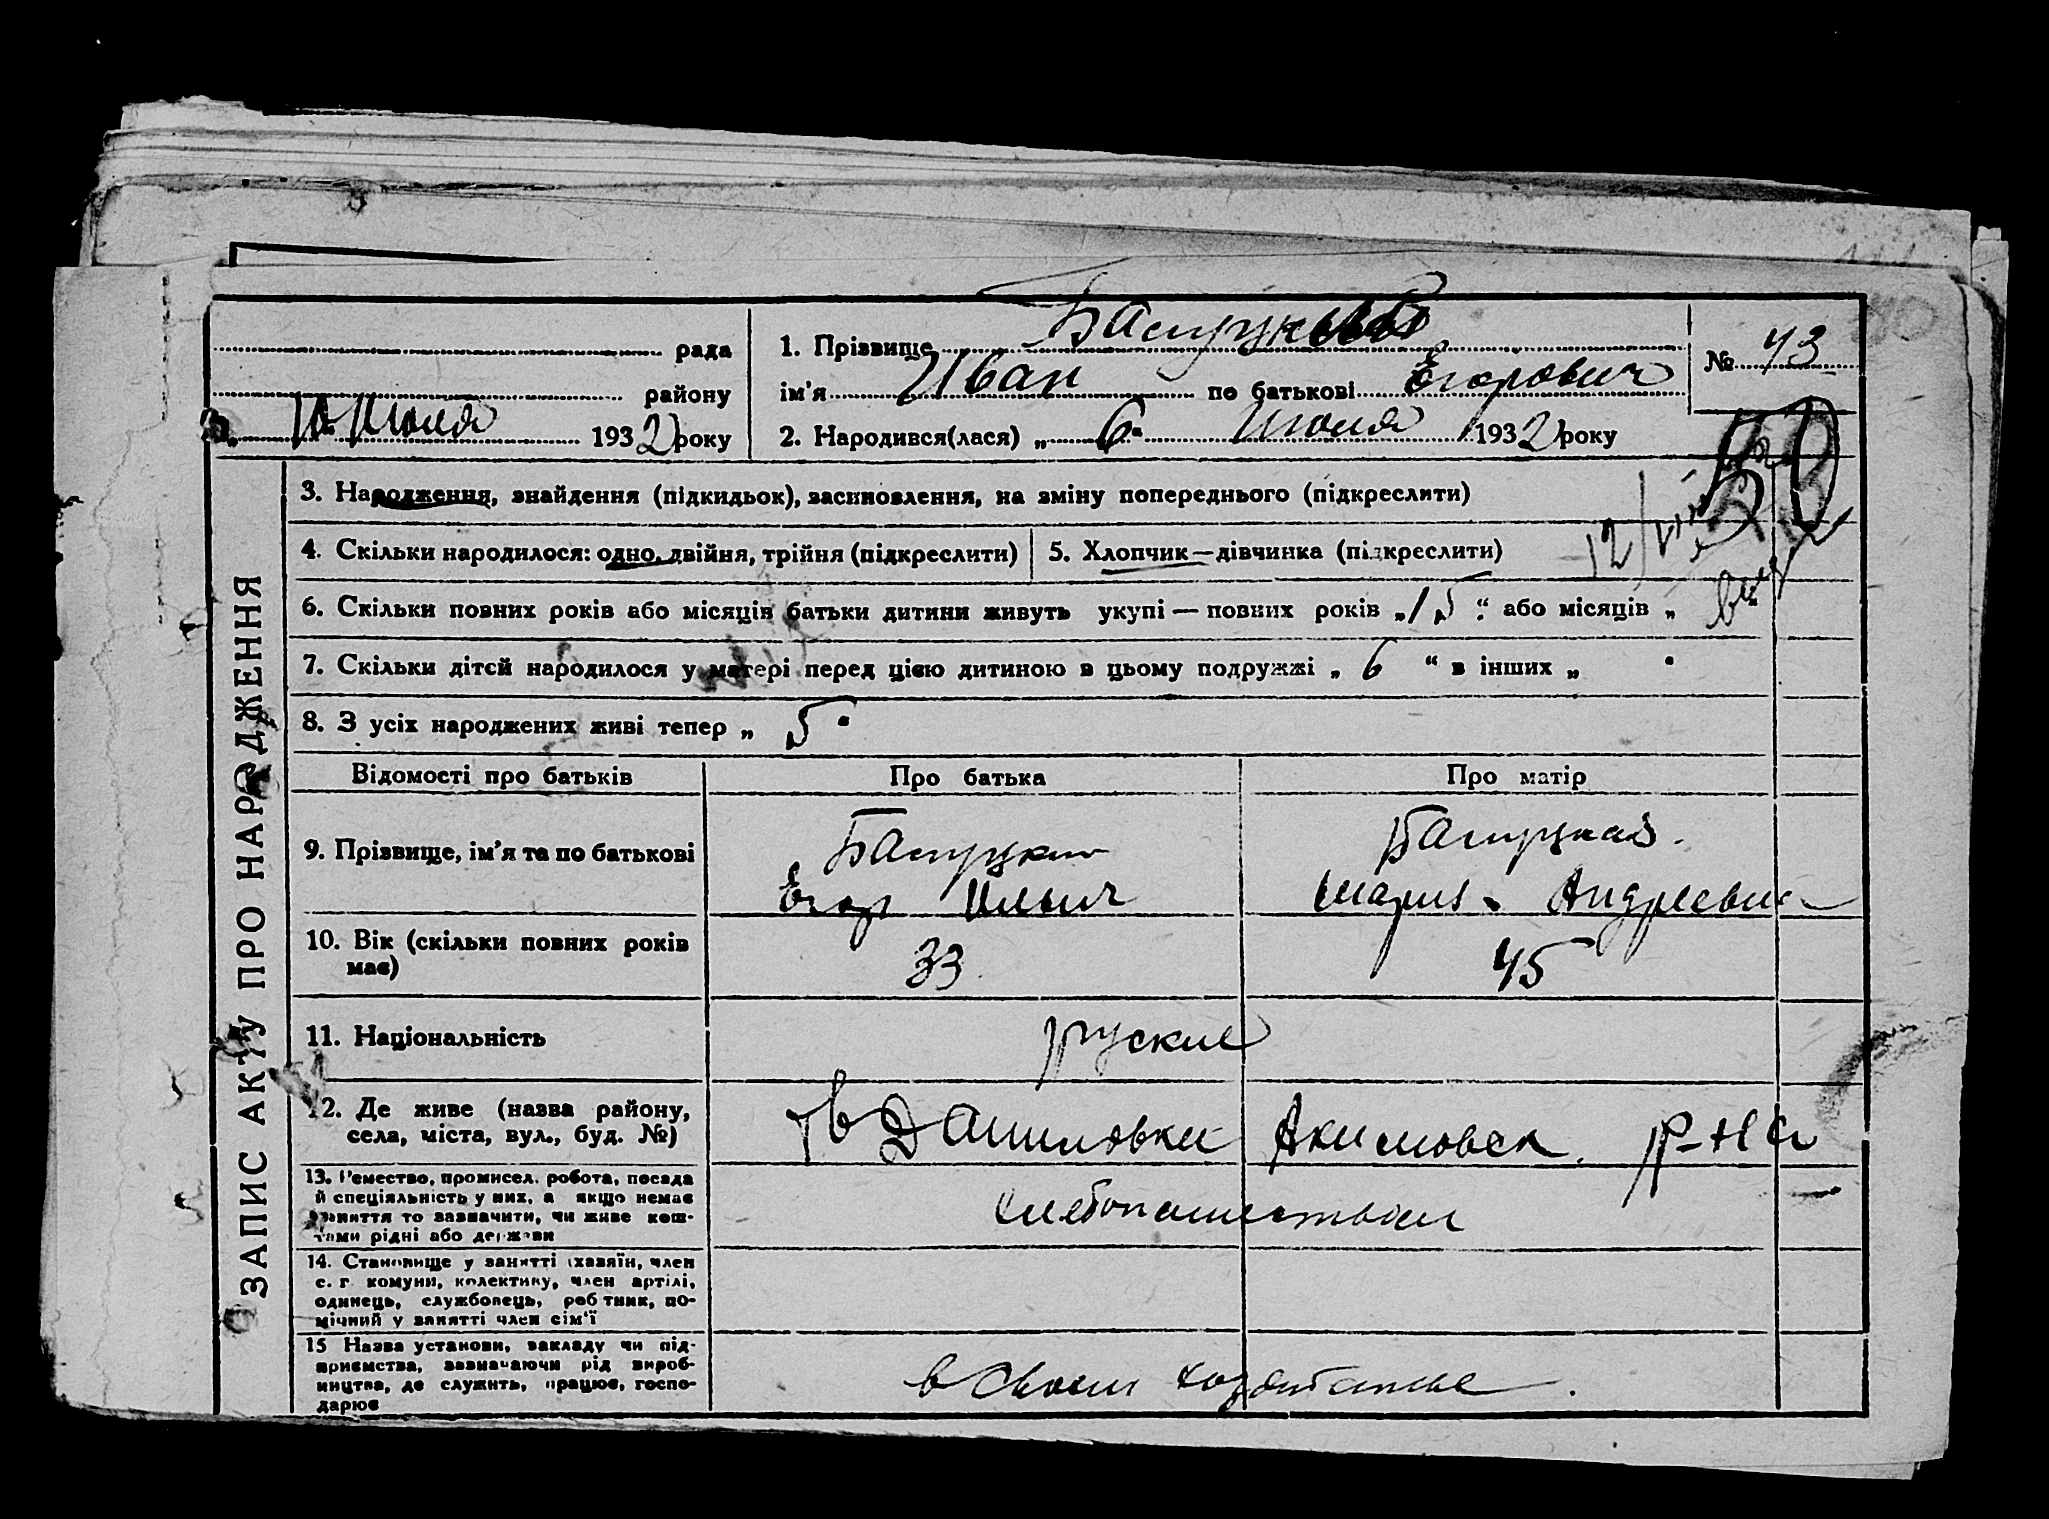 рада
1. Прізвище
№ 43
району
ім'я Иван по батькові Егорович
10 Июля 1932 року
2. Народився(лася) „ 6 " Июля 1932 року
50
3. Народження, знайдення (підкидьок), засиновлення, на зміну попереднього (підкреслити)
4. Скільки народилося: одно, двійня, трійня (підкреслити)
5. Хлопчик—дівчинка (підкреслити)
12/VIII
6. Скільки повних років або місяців батьки дитини живуть укупі — повних років „ 15 " або місяців „
7. Скільки дітей народилося у матері перед цією дитиною в цьому подружжі „ 6 " в інших „ "
8. З усіх народжених живі тепер „ 5 "
Відомості про батьків
Про батька
Про матір
9. Прізвище, ім'я та по батькові
Егор Ильич
Мария Андреевна
10. Вік (скільки повних років має)
33
45
11. Національність
руские
12. Де живе (назва району,
села, міста, вул., буд. №)
Даниловка Акимовск. р-на
13. Ремество, промисел, робота, посада
й спеціяльність у них, а якщо немає
заняття то зазначити, чи живе кош-
тами рідні або держави
хлебопашеством
14. Становище у занятті (хазяїн, член
с. г. комуни, колективу, член артілі,
одинець, службовець, робітник, по-
мічний у занятті член сім'ї
15 Назва установи, закладу чи під-
приємства, зазначаючи рід вироб-
ництва, де служить, працює, госпо-
дарює
в своем хозяйстве
ЗАПИС АКТУ ПРО НАРОДЖЕННЯ